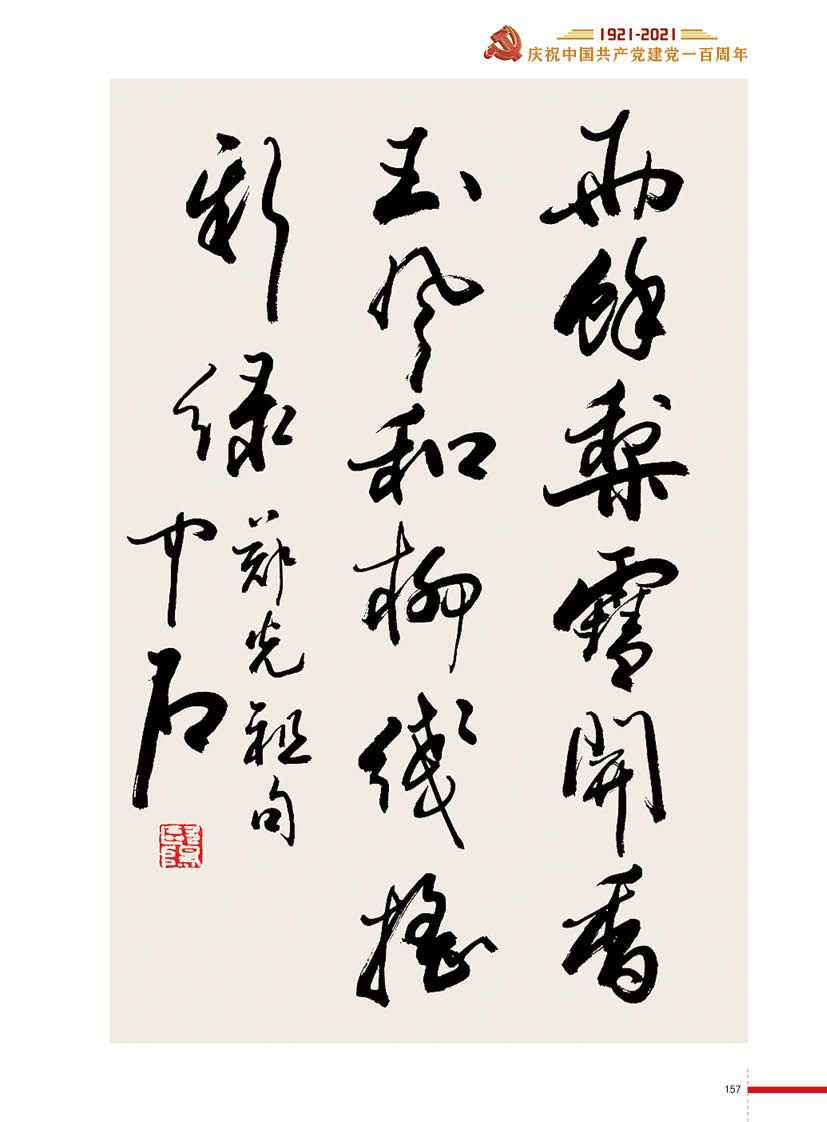 1921-2021
庆祝中国共产党建党一百周年
雨餘梨雪開香
玉风和柳线摇
新绿
郑光祖句
中石
157